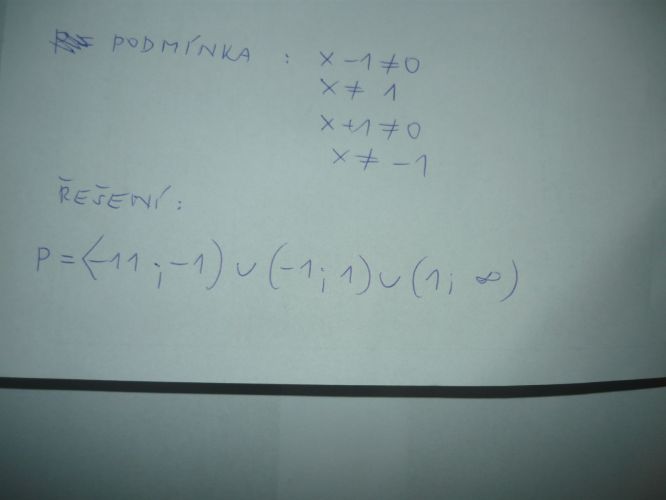 PODMÍNKA : x -1 ≠ 0
x ≠ 1
x +1 ≠ 0
x ≠ -1
ŘEŠENÍ:
P = ⟨-11 ; -1) ∪ (-1 ; 1) ∪ (1 ; ∞)